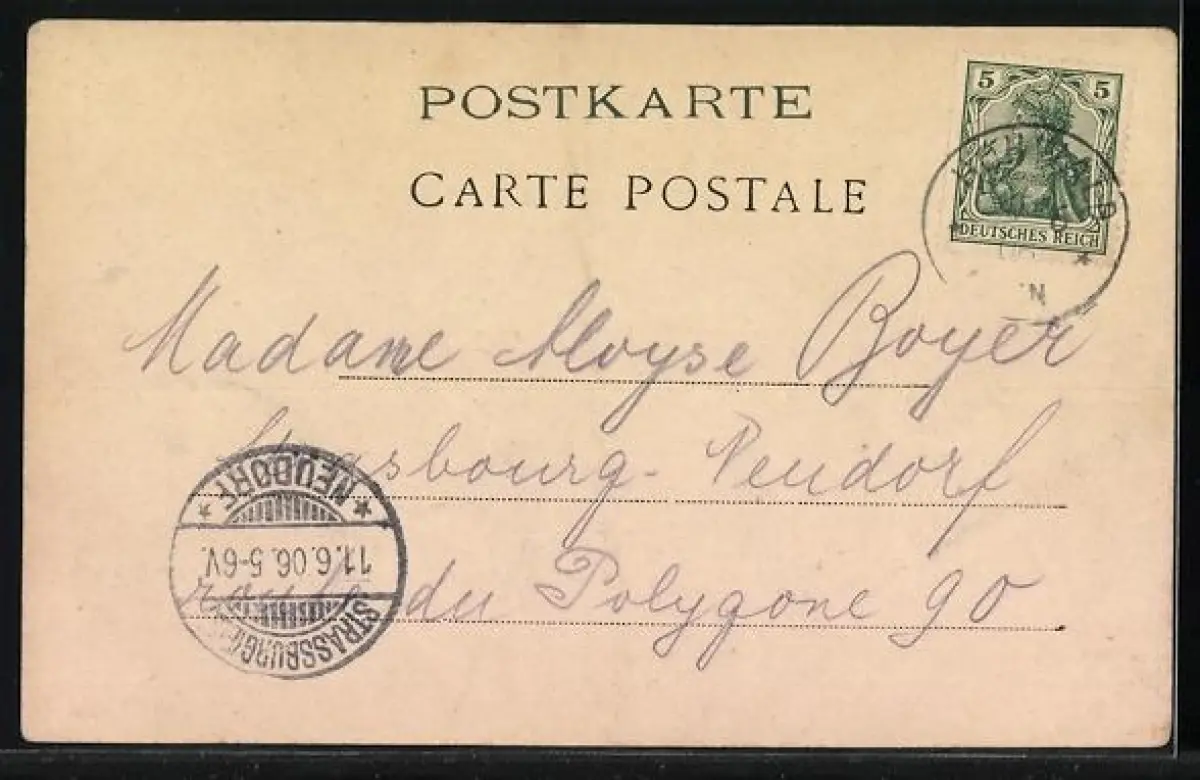 POSTKARTE
CARTE POSTALE
5 5
DEUTSCHES REICH
Madame Aloyse Boyer
Strasbourg-Neudorf
route du Polygone 90
* NEUDORF *
11.6.06.5-6V.
STRASSBURG